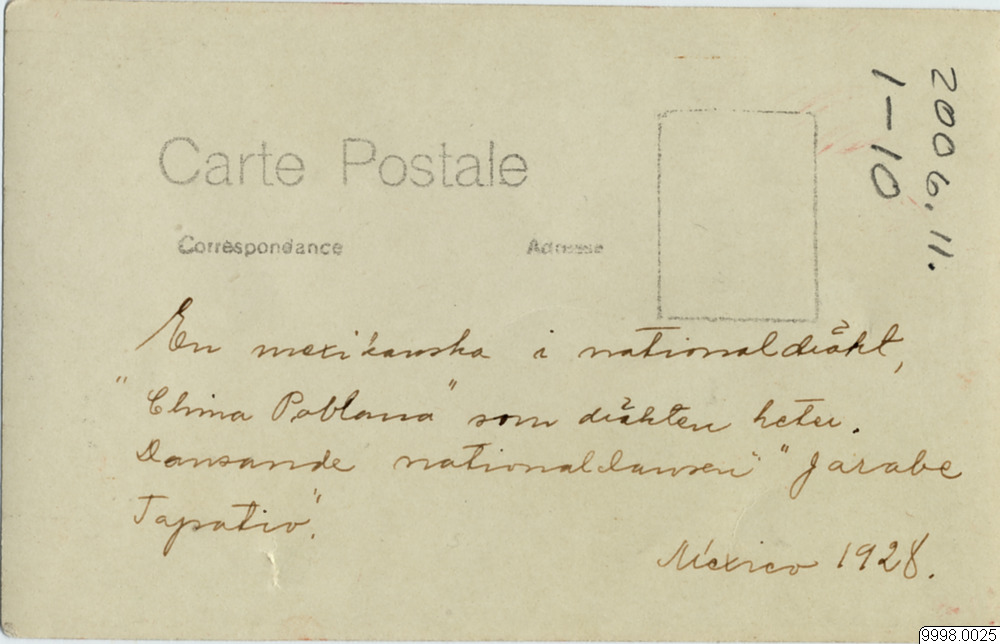 Carte Postale
Correspondance Adresse
2006.11.
1-10
En mexikanska i nationaldräkt,
"China Poblana" som dräkten heter.
Dansande nationaldansen "Jarabe
Tapatio".
México 1928.
9998.0025